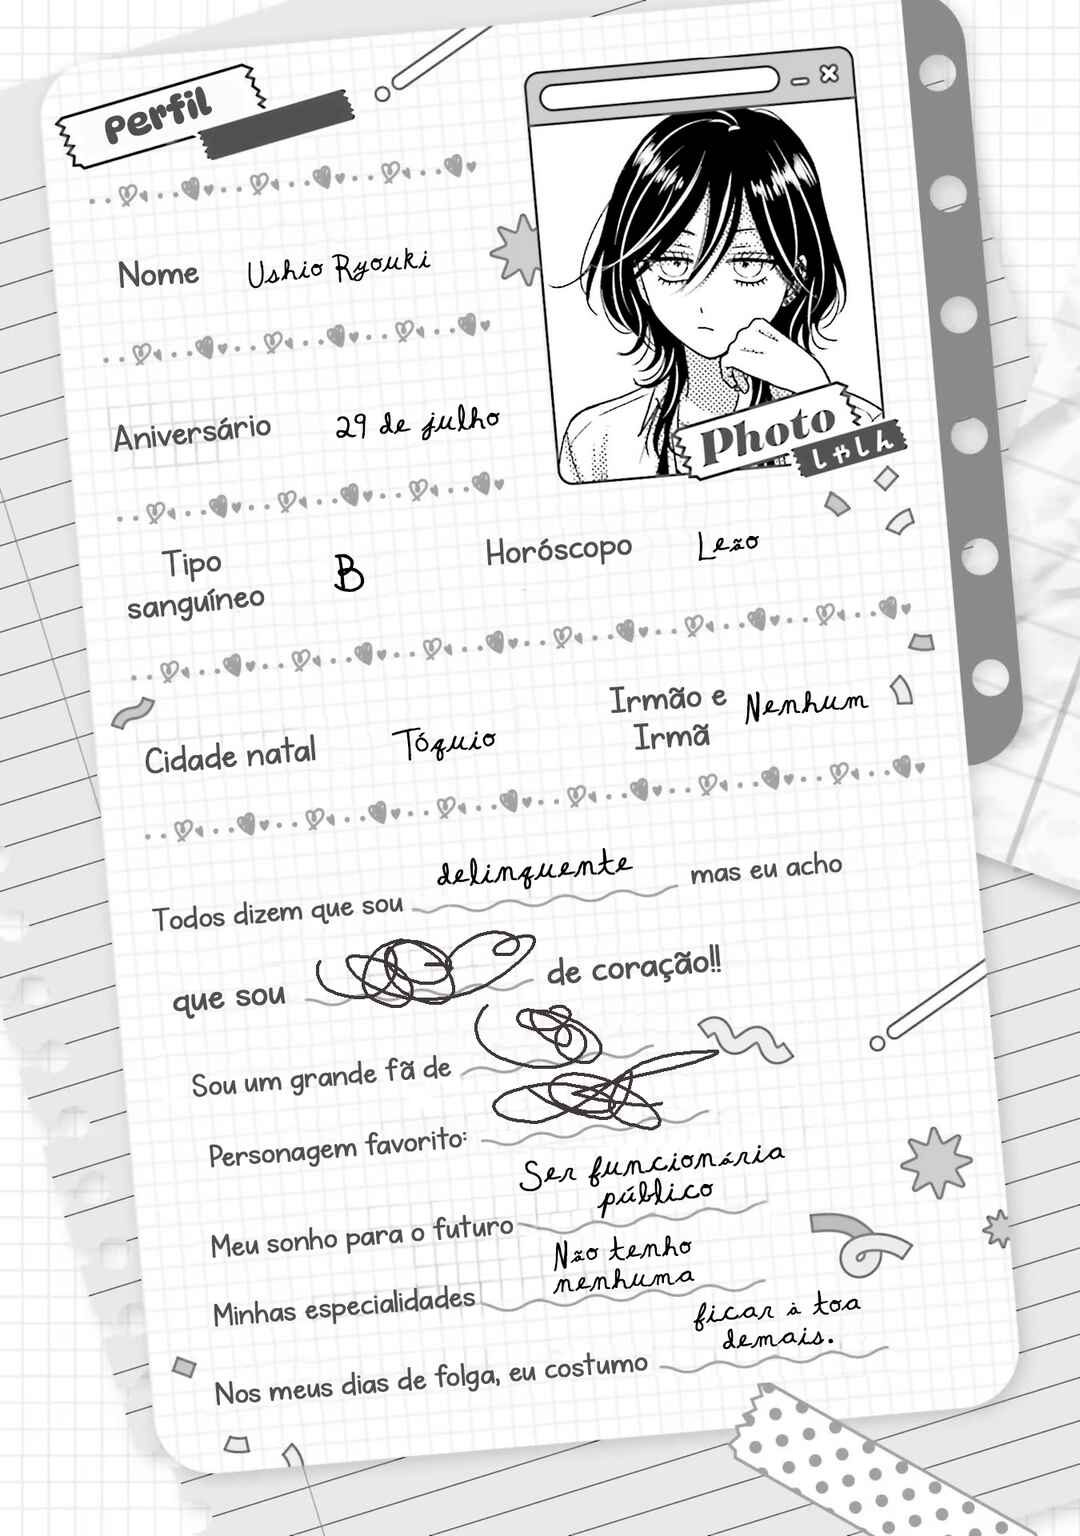 perfil
Nome Ushio Ryouki
Aniversário 29 de julho
Photo
しゃしん
Tipo sanguíneo B
Horóscopo Leão
Cidade natal Tóquio
Irmão e Irmã Nenhum
Todos dizem que sou delinquente mas eu acho
que sou de coração!!
Sou um grande fã de
Personagem favorito:
Meu sonho para o futuro Ser funcionária público
Minhas especialidades Não tenho nenhuma
Nos meus dias de folga, eu costumo ficar à toa demais.